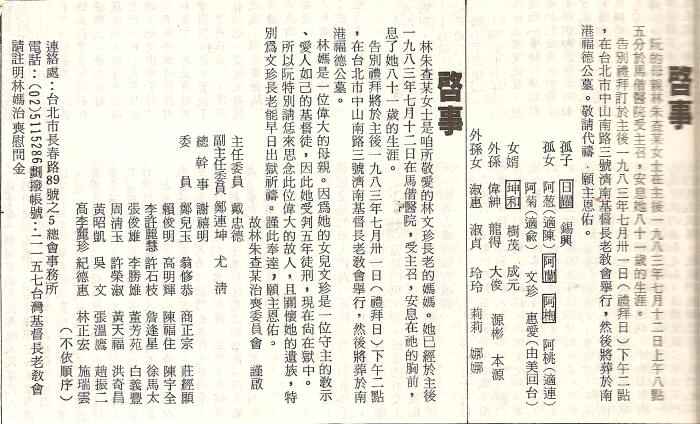 啓事
阮的母親林朱查某女士在主後一九八三年七月十二日上午八點
五分於馬偕醫院受主召,安息是她八十一歲的生涯。
告別禮拜訂於主後一九八三年七月卅一日(禮拜日)下午二點
,在台北市中山南路三號濟南基督長老教會舉行,然後將葬於南
港福德公墓。敬請代禱.願主恩佑。
孤子 日圖 錫興
孤女 阿葱(適陳) 阿蘭 阿梅 阿桃(適連)
阿菊(適俞) 文珍 惠愛(由美回台)
女婿 坤和 樹茂 成元
外孫 偉紳 龍得 大俊 源彬 本源
外孫女 淑惠 淑貞 玲玲 莉莉 娜娜
啓事
林朱查某女士是咱所敬愛的林文珍長老的媽媽。她已經於主後
一九八三年七月十二日在馬偕醫院,受主召,安息在祂的胸前,
息了她八十一歲的生涯。
告別禮拜將於主後一九八三年七月卅一日(禮拜日)下午二點
,在台北市中山南路三號濟南基督長老教會舉行,然後將葬於南
港福德公墓。
林媽是一位偉大的母親。因爲她的女兒文珍是一位守主的教示
、愛人如己的基督徒,因此她受判五年徒刑,現在尙在獄中。
所以阮特別請恁來思念此位偉大的故人,且關懷她的遺族,特
別爲文珍長老能早日出獄祈禱。謹此奉達,願主恩佑。
故林朱查某治喪委員會 謹啟
主任委員 戴忠德
副主任委員 鄭連坤 尤清
總幹事 謝禧明
委員 鄭兒玉 翁修恭 商正宗 莊經顯
賴俊明 高明輝 陳福住 陳宇全
李許麗慧 許石枝 詹逢星 徐馬太
張俊雄 李勝雄 董芳苑 白義豐
周清玉 許榮淑 黃天福 洪奇昌
黃昭凱 吳文 張溫鷹 趙振二
高李麗珍 紀德惠 林正宏 施瑞雲
(不依順序)
連絡處:台北市長春路89號之5總會事務所
電話:(02)5115286劃撥帳號:二一五七台灣基督長老教會
請註明林媽治喪慰問金